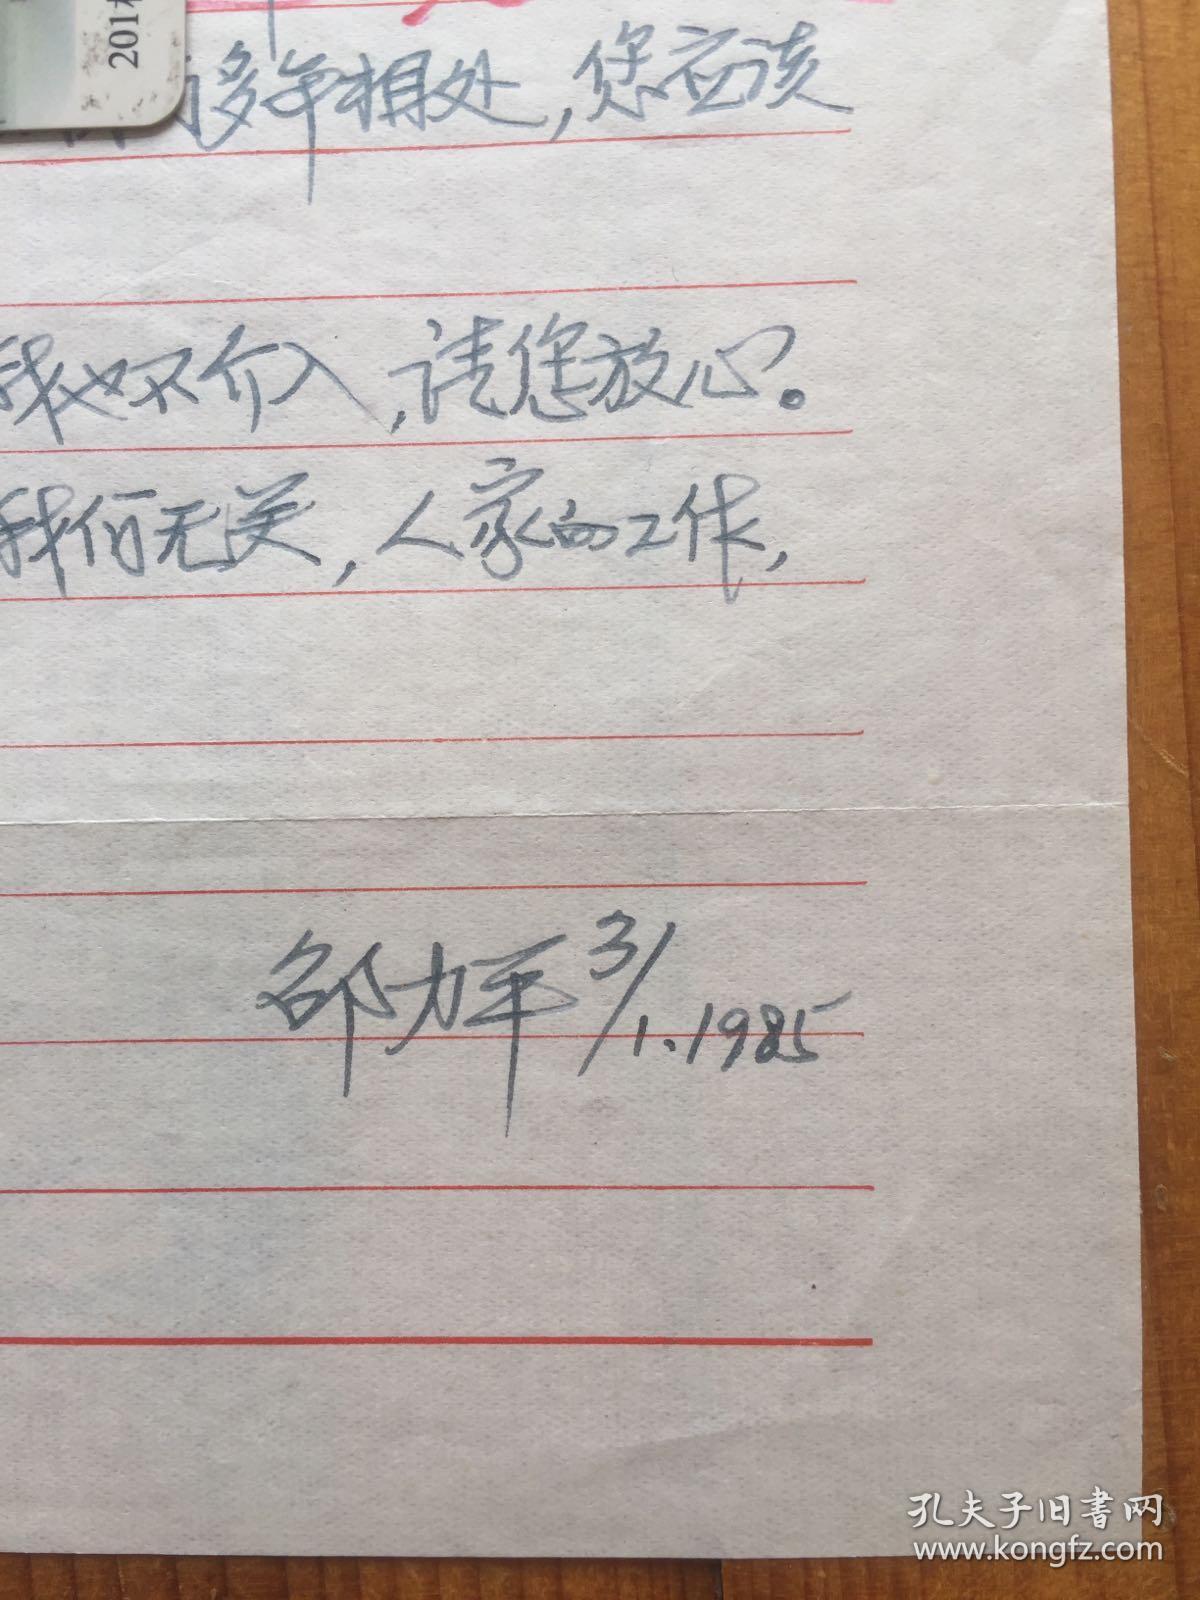 201
多年相处，您应该
我也不介入，请您放心。
我们无关，人家的工作，
邵力平 3/1.1985
孔夫子旧书网
www.kongfz.com